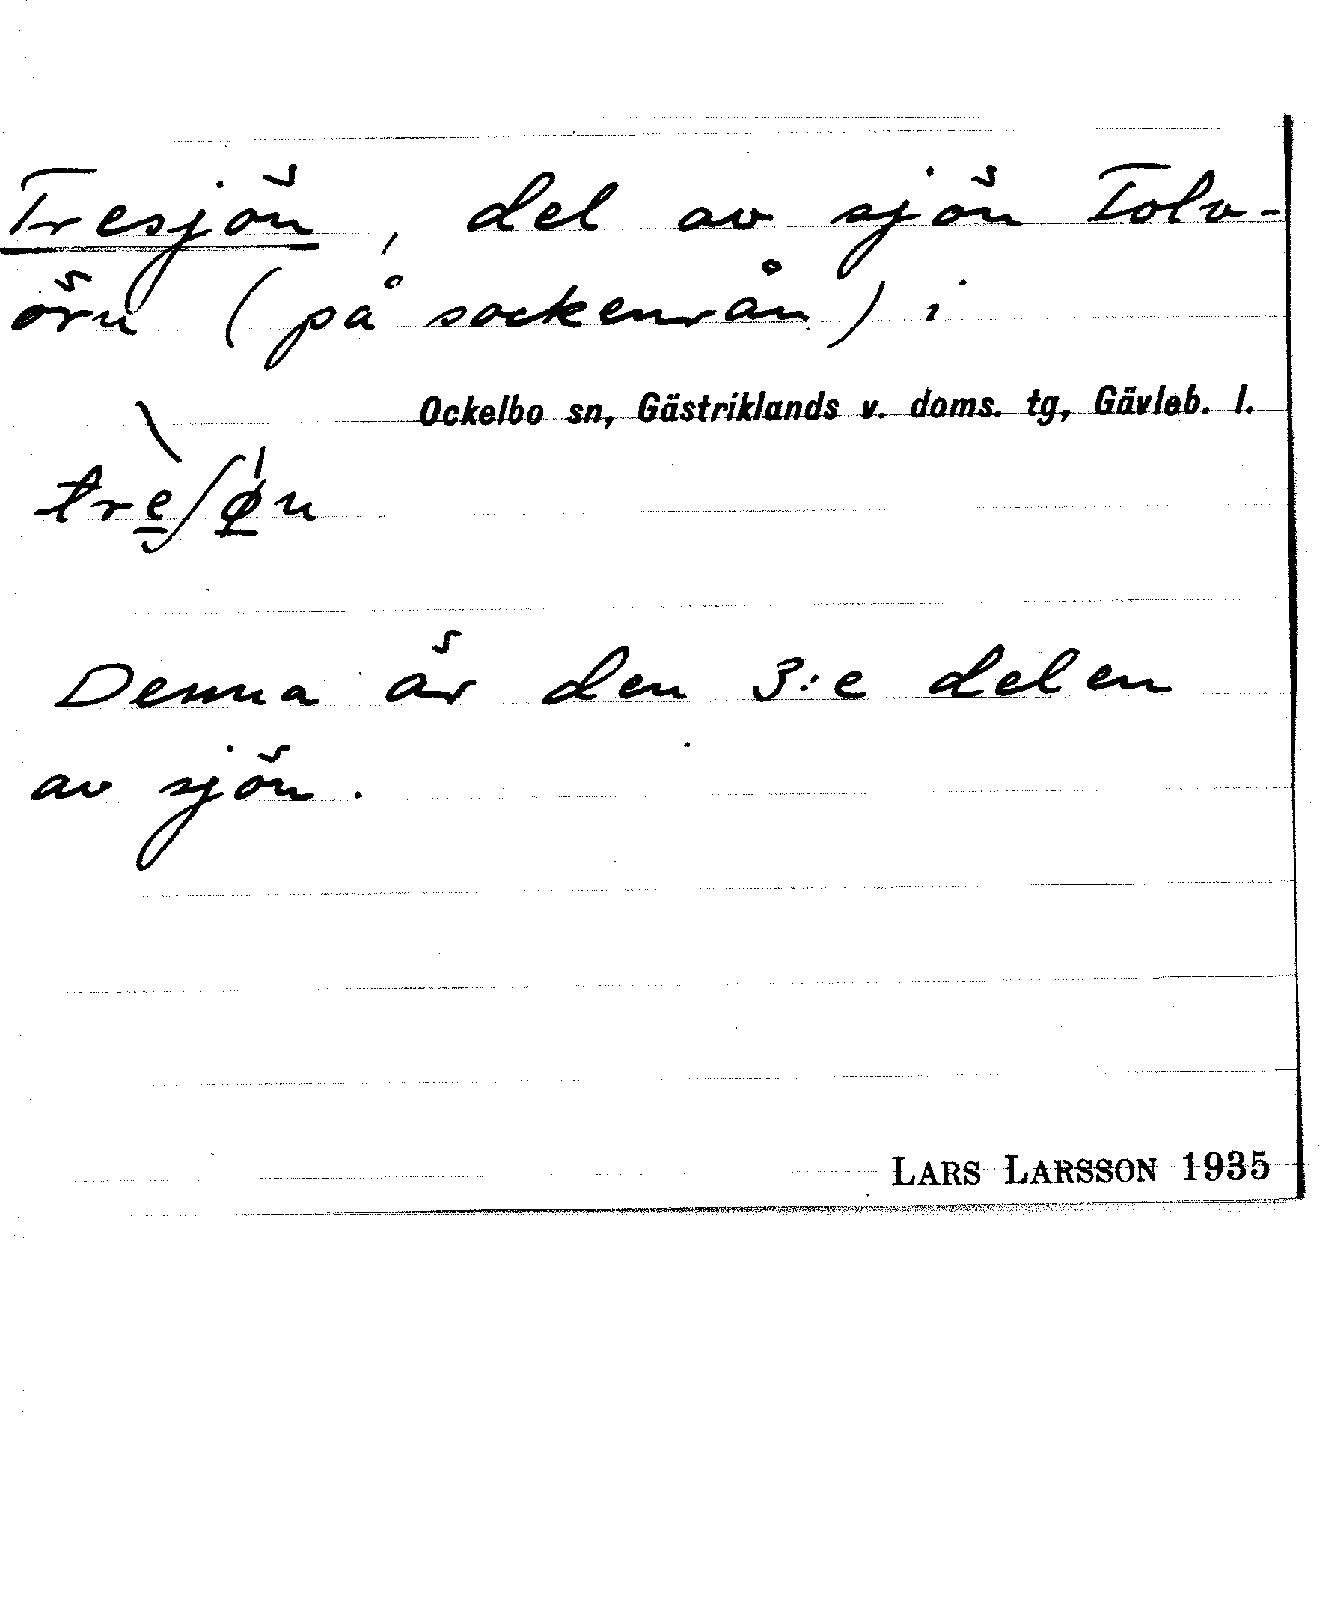 Tresjön, del av sjön Tolv-
örn (på sockenrån) i
Ockelbo sn, Gästriklands v. doms. tg, Gävleb. l.
tre̲ʃø̲n
Denna är den 3:e delen
av sjön.
LARS LARSSON 1935